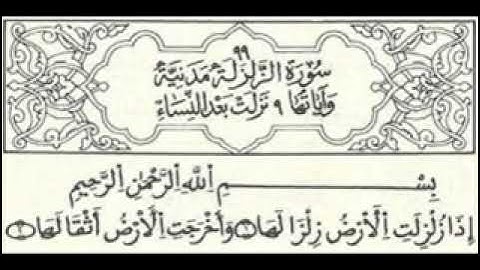 ٩٩
سُورَة الزَّلْزَلَةْ مَدَنِيَّة
وَآيَاتُهَا ٩ نَزَلَتْ بَعْدَ النِّسَاءْ
بِسْمِ اللَّهِ الرَّحْمَٰنِ الرَّحِيمِ
إِذَا زُلْزِلَتِ الْأَرْضُ زِلْزَالَهَا ١ وَأَخْرَجَتِ الْأَرْضُ أَثْقَالَهَا ٢